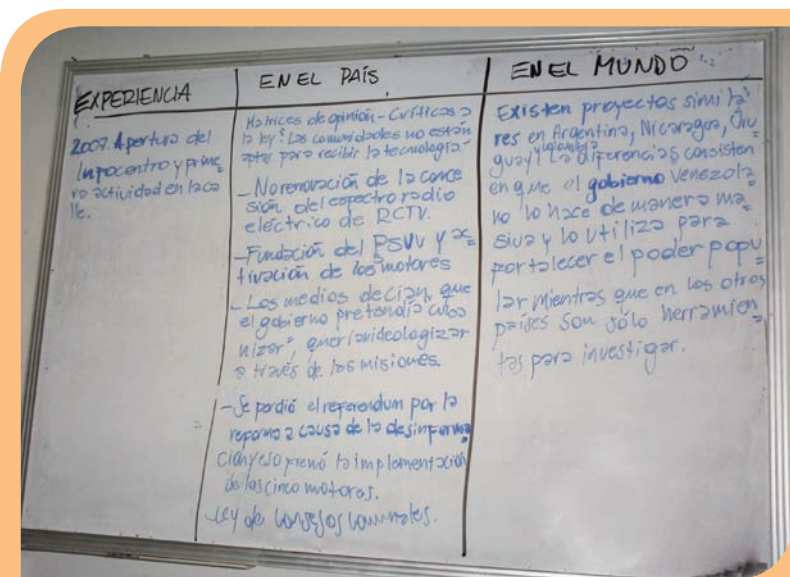 EXPERIENCIA
2007. Apertura del
Infocentro y prime
ra actividad en la ca
lle.
EN EL PAÍS
Matrices de opinión - Críticas a
la ley: Las comunidades no están
aptas para recibir la tecnología
- No renovación de la conce
sión del espectro radio
eléctrico de RCTV.
- Fundación del PSUV y ac=
tivación de los motores
- Los medios decían que
el gobierno pretendía cuba
nizar", querían ideologizar
a través de las misiones.
- Se perdió el referendum por la
reforma a causa de la desinforma
ción y eso frenó la implementación
de los cinco motores.
- Ley de Consejos Comunales.
EN EL MUNDO
Existen proyectos simila=
res en Argentina, Nicaragua, Uru=
guay y Colombia La diferencias consisten
en que el gobierno Venezola
no lo hace de manera ma=
siva y lo utiliza para
fortalecer el poder popu
lar mientras que en los otros
países son sólo herramien=
tas para investigar.